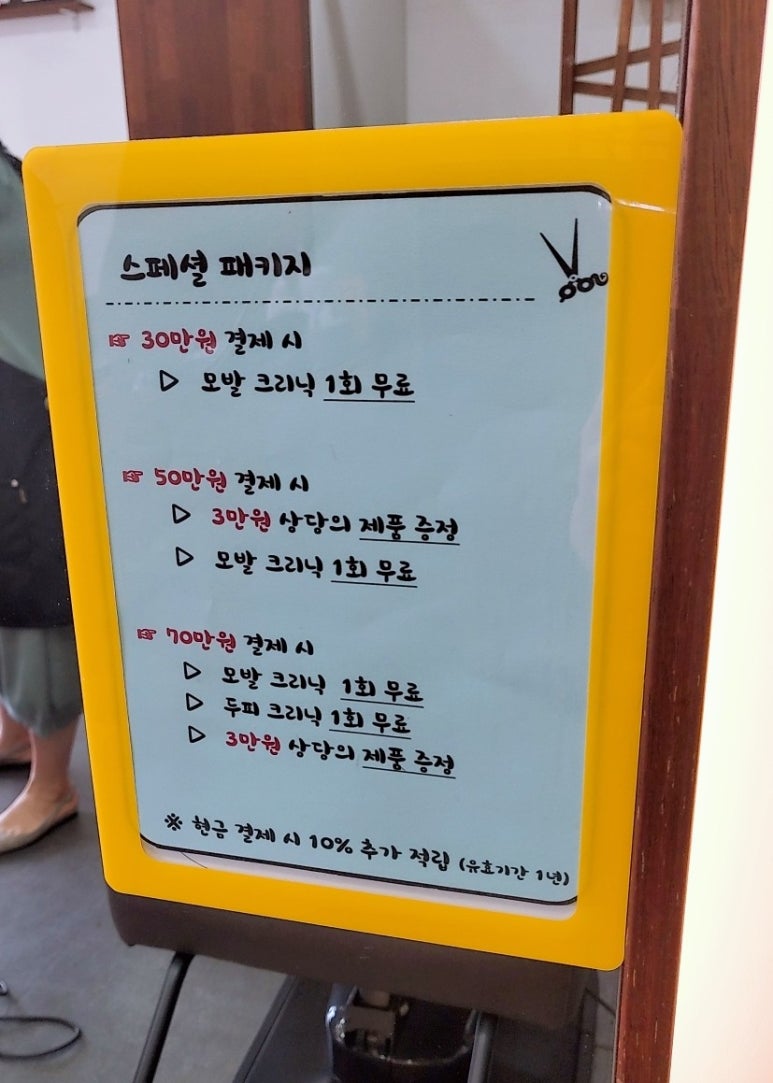 스페셜 패키지
☞ 30만원 결제 시
▷ 모발 크리닉 1회 무료
☞ 50만원 결제 시
▷ 3만원 상당의 제품 증정
▷ 모발 크리닉 1회 무료
☞ 70만원 결제 시
▷ 모발 크리닉 1회 무료
▷ 두피 크리닉 1회 무료
▷ 3만원 상당의 제품 증정
※ 현금 결제 시 10% 추가 적립 (유효기간 1년)